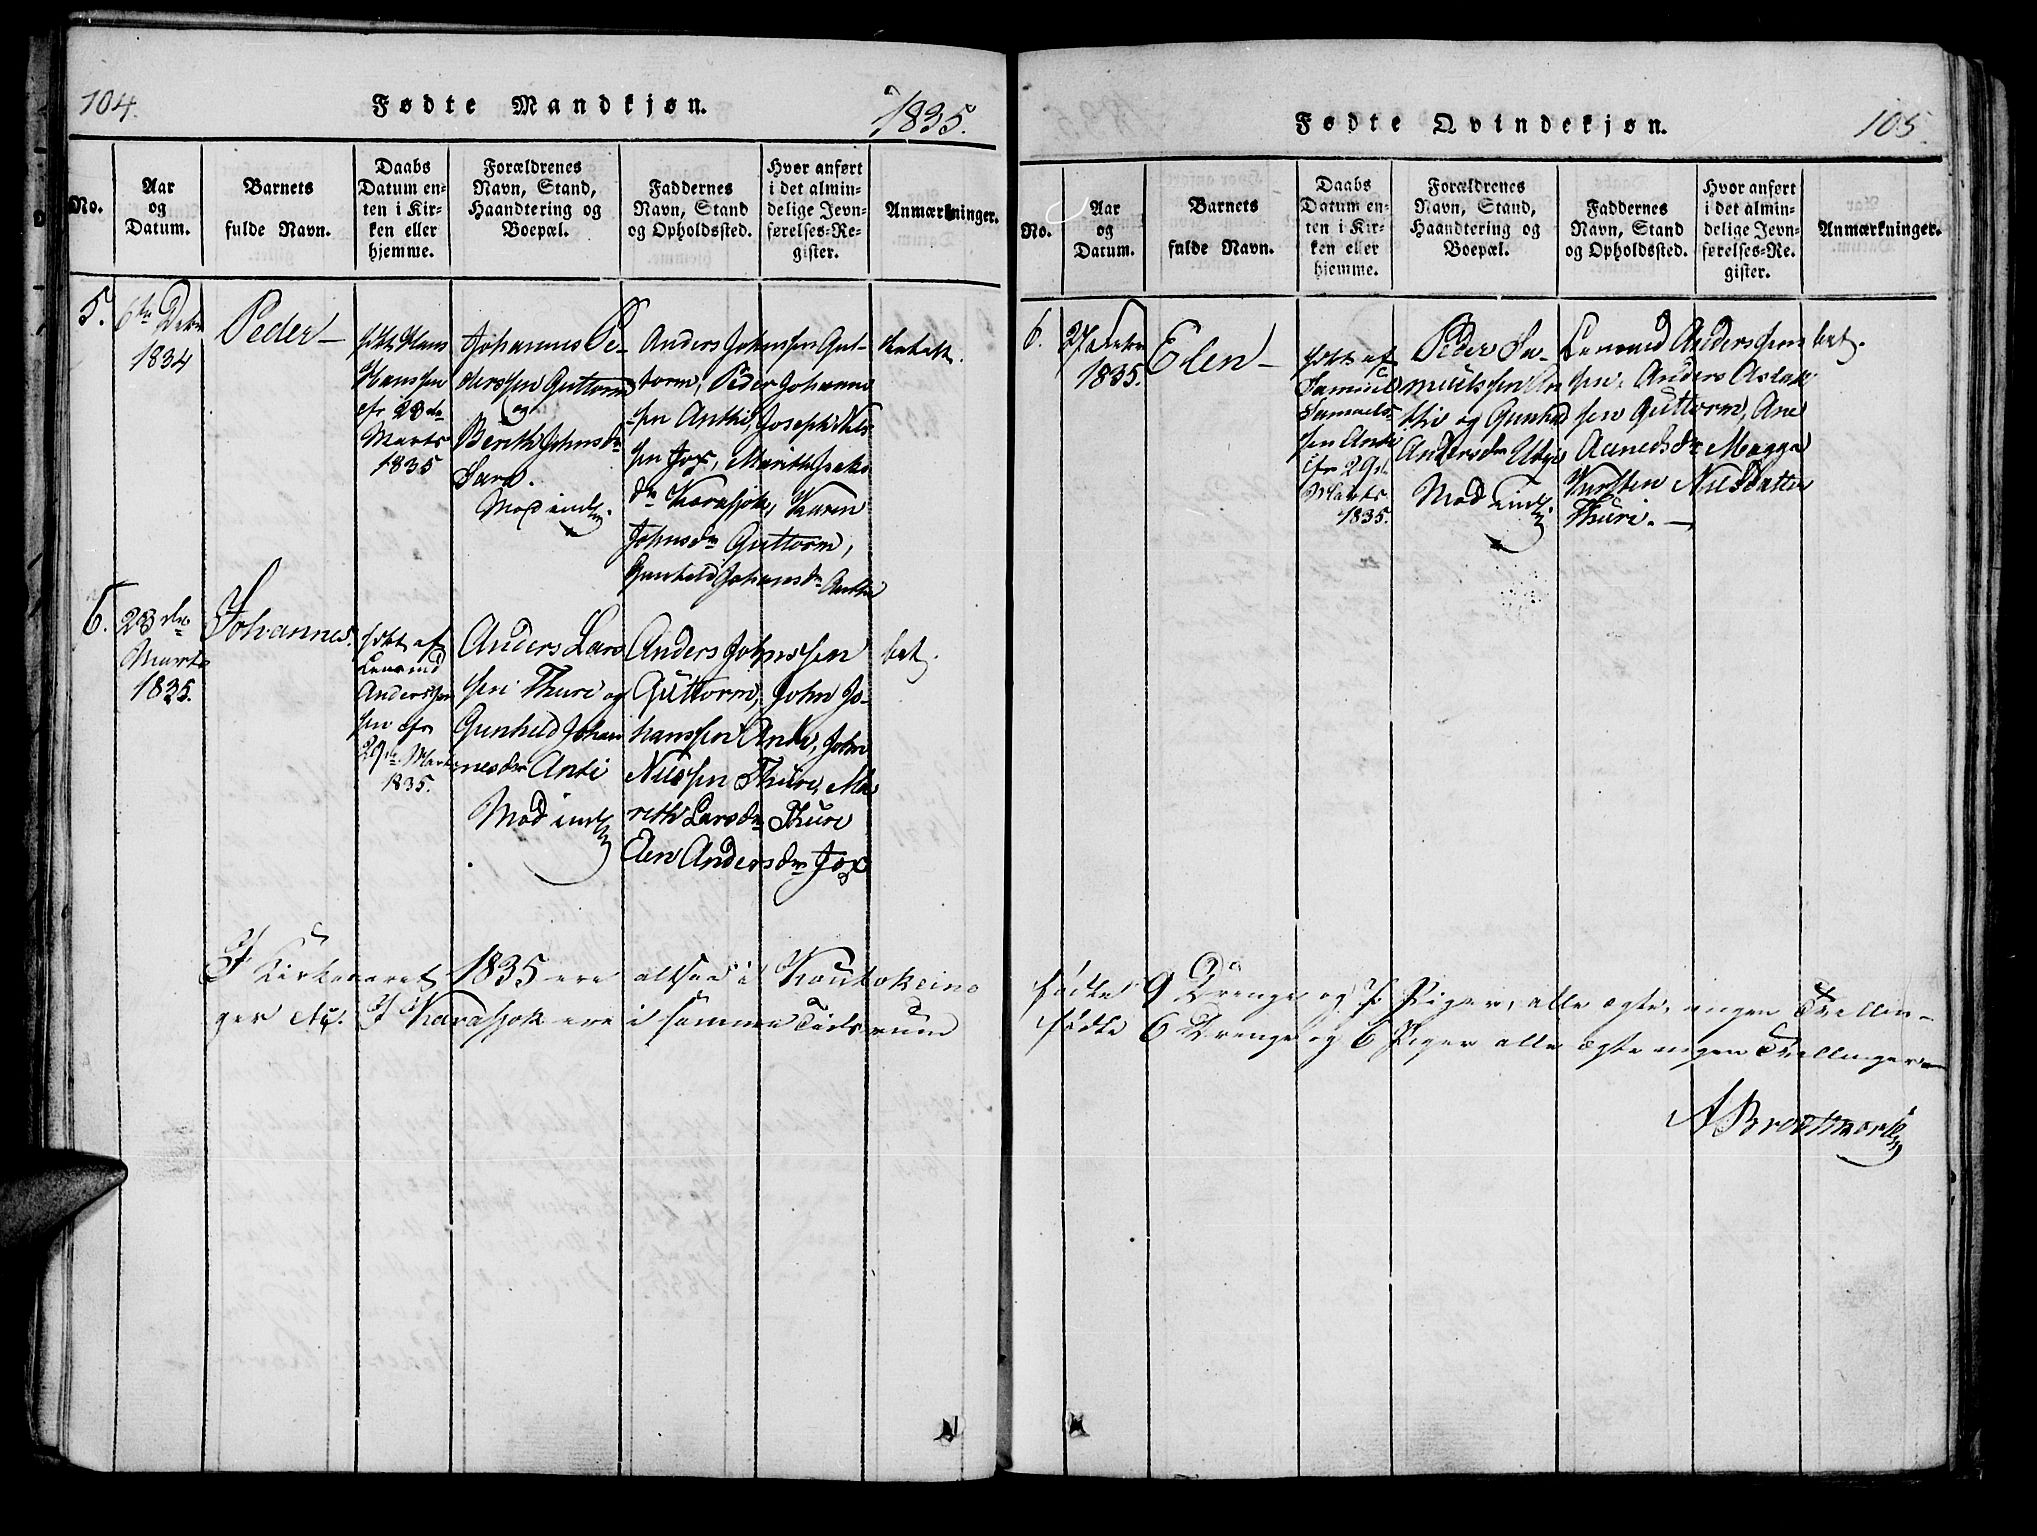 104.
Fødte Mandkjøn.
1835.
No.
Aar og Datum.
Barnets fulde Navn.
Daabs Datum en-
ten i Kir-
ken eller
hjemme.
Forældrenes
Navn, Stand,
Haandtering og
Boepæl.
Faddernes
Navn, Stand
og Opholdssted.
Hvor anført
i det almin-
delige Jevn-
førelses-Re-
gister.
Anmærkninger.
5.
1834
Peder
Hans
Hanssen
efr 28de
Marts
1835
Johannes Pe-
derssen Guttorm
og
Berith Johnsdr
Sara.
Mod indl.
Anders Johnssen Gut-
torm, Peder Johanne
sen Anthi, Joseph Nils-
sen Jox, Marith
dr Karasjok, Karen
Johnsdr Guttorm,
Gunhild Johansdr Anthi
betalt.
6.
28de
Marts
1835.
Johannes.
døbt af
Anders
sen efr
29de Marts
1835.
Anders Lars
sen Thuri og
Gunhild Johan
nesdr Anti
Mod indl
Anders Johnssen
Guttorm, John Jo-
hanssen Anti, John
Nilssen Thuri, Ma
reth Larsdr Thuri
Elen Andersdr Jox
bet.
I Kirkeaaret 1835 ere altsaa i Koutokeino
ger Nij. I Karasjok ere i samme Tidsrum
Fødte Qvindekjøn.
105.
No.
Aar og Datum.
Barnets fulde Navn.
Daabs
Datum en-
ten i Kir-
ken eller
hjemme.
Forældrenes
Navn, Stand,
Haandtering og
Boepæl.
Faddernes
Navn, Stand
og Opholdssted.
Hvor anført
i det almin-
delige Jevn-
førelses-Re-
gister.
Anmærkninger.
6.
1835.
Elen
døbt af
Samuel
Samuels-
sen Anti
efr 29de
Marts
1835.
Peder Sa-
muelssen An
thi og Gunhild
Andersdr Utzi
Mod indl.
Anders
sen, Anders Aslak
sen Guttorm, Ane
dr Magga
Kirsten Nilsdatter
Thuri.
bet.
fødte 9 Drenge og 7 Piger, alle ægte, ingen Tvellin-
fødte 6 Drenge og 6 Piger alle ægte ingen Tvellinger